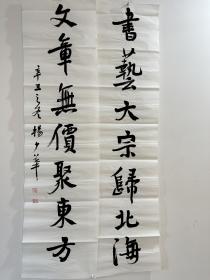 書藝大宗歸北海
文章無價聚東方
辛丑之冬楊夕華